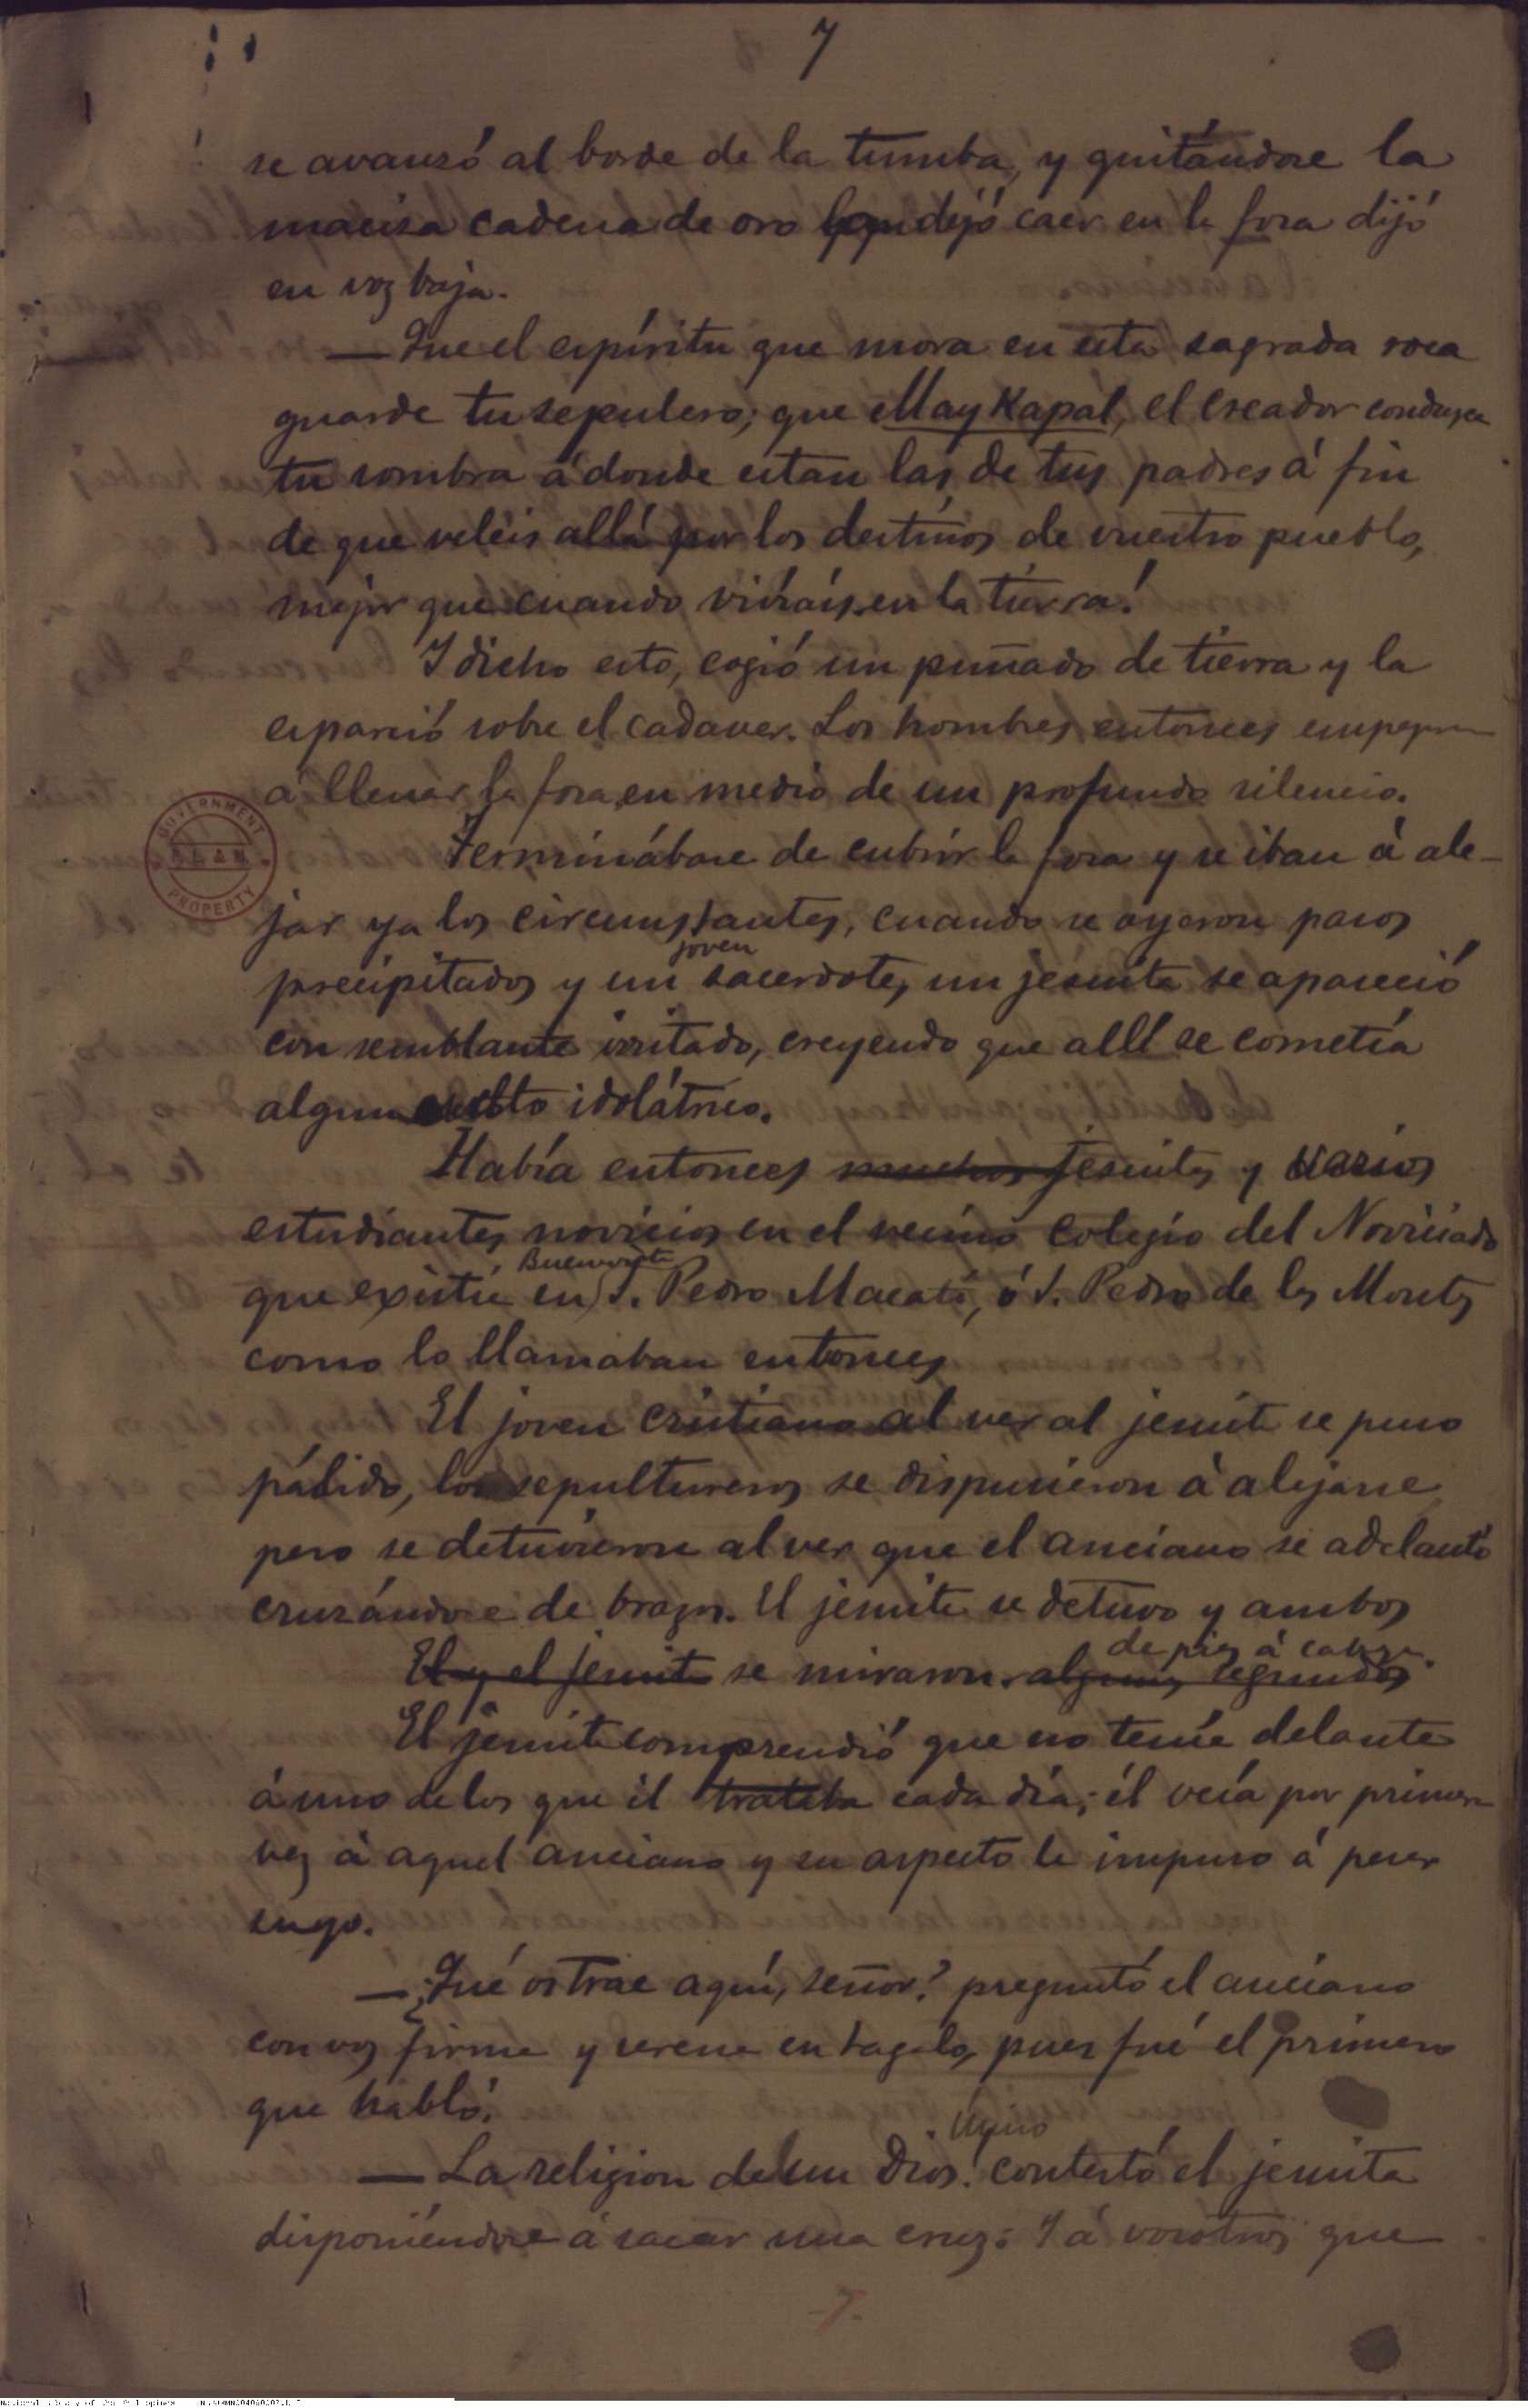 7
se avanzó al borde de la tumba, y quitándose la
maciza cadena de oro dejó caer en la fosa dijó
en voz baja.
— Que el espíritu que mora en esta sagrada roca
guarde tu sepulcro; que May Kapal, el creador conduzca
tu sombra á donde estan las de tus padres á fin
de que veleis allá por los destinos de vuestro pueblo,
mejor que cuando vivíais en la tierra!
Y dicho esto, cogió un puñado de tierra y la
esparció sobre el cadaver. Los hombres entonces
á llenar la fosa, en medio de un profundo silencio.
Terminábase de cubrir la fosa y se iban á ale-
jar ya los circunstantes, cuando se oyeron pasos
joven
precipitados y un sacerdote, un jesuita se apareció
con semblante irritado, creyendo que allí se cometía
algun culto idolátrico.
Había entonces muchos jesuitas y varios
estudiantes novicios en el vecino colegio del Noviciado
Buenavista
que existía en S. Pedro Macati, ó S. Pedro de los Montes
como lo llamaban entonces
El joven cristiano al ver al jesuita se puso
pálido, los sepultureros se dispusieron á alejarse
pero se detuvieron al ver que el anciano se adelantó
cruzándose de brazos. El jesuita se detuvo y ambos
de pies á cabeza.
El y el jesuita se miraron algunos segundos
El jesuita comprendió que no tenía delante
á uno de los que él trataba cada día; él veía por primera
vez á aquel anciano y su aspecto le impuso á pesar
suyo.
— ¿Qué os trae aquí, señor? preguntó el anciano
con voz firme y serena en tagalo, pues fué el primero
que habló.
— La religion de un Dios! contestó el jesuita
disponiéndose á sacar una cruz: Y á vosotros que
-7-
GOVERNMENT
PROPERTY